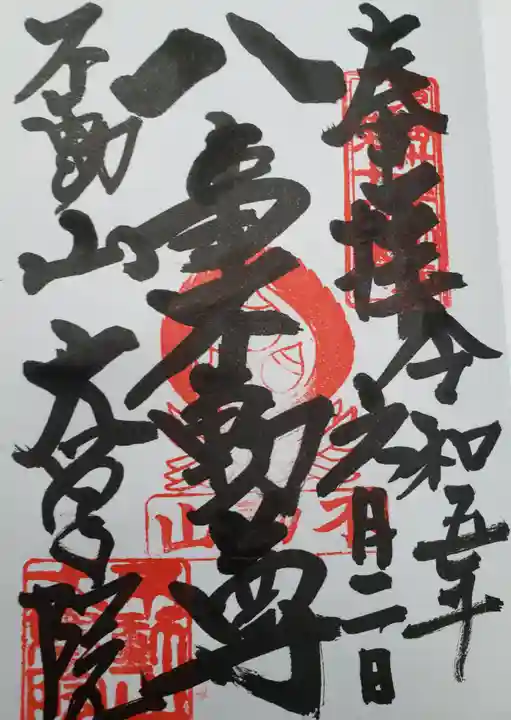 奉拝 令和五年
六月二日
八事不動尊
不動山 大学院